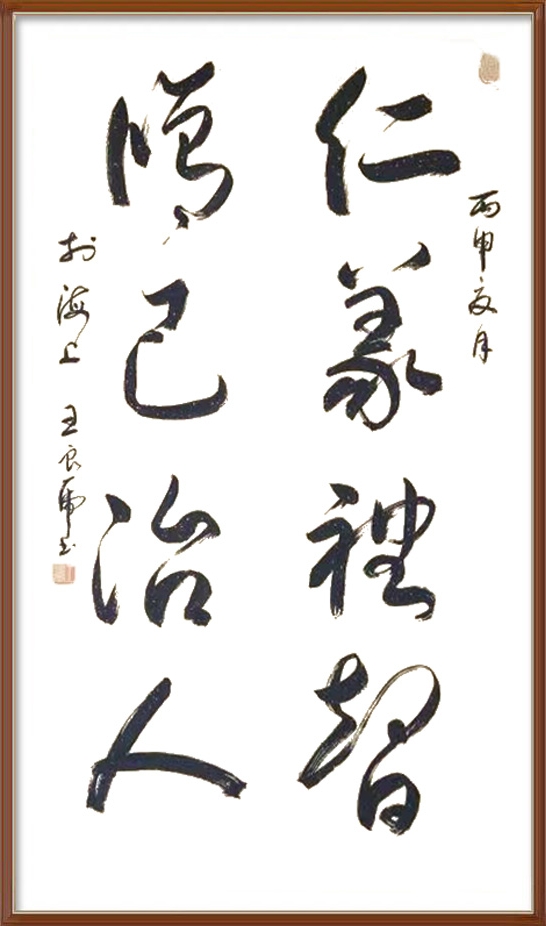 丙申夏月
仁義禮智
脩己治人
於海上 王良虎书